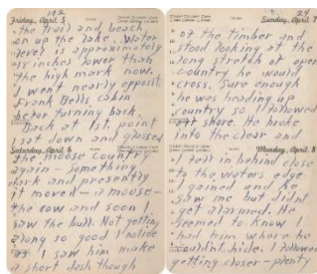 192
Friday, April 5
the trail and beach
on up the lake. Water
level is approximately
18 inches lower than
the high mark now.
I went nearly opposite
Frank Bells, cabin
before turning back.
Back at 1st. point
I sat down and glassed
Saturday, April 6
the moose country
again - something
dark and presently
it moved - a moose -
the cow and soon I
saw the bull. Not getting
along so good I notice
as I saw him make
a short dash though
24
Sunday, April 7
of the timber and
stood looking at the
long stretch of open
country he would
cross. Sure enough
he was heading up
country so I followed
at shore. He broke
into the clear and
Monday, April 8
I fell in behind close
to the waters edge.
I gained and he
saw me but didnt
get alarmed. He
seemed to know I
had him where he
couldnt hide. I followed
getting closer - plenty